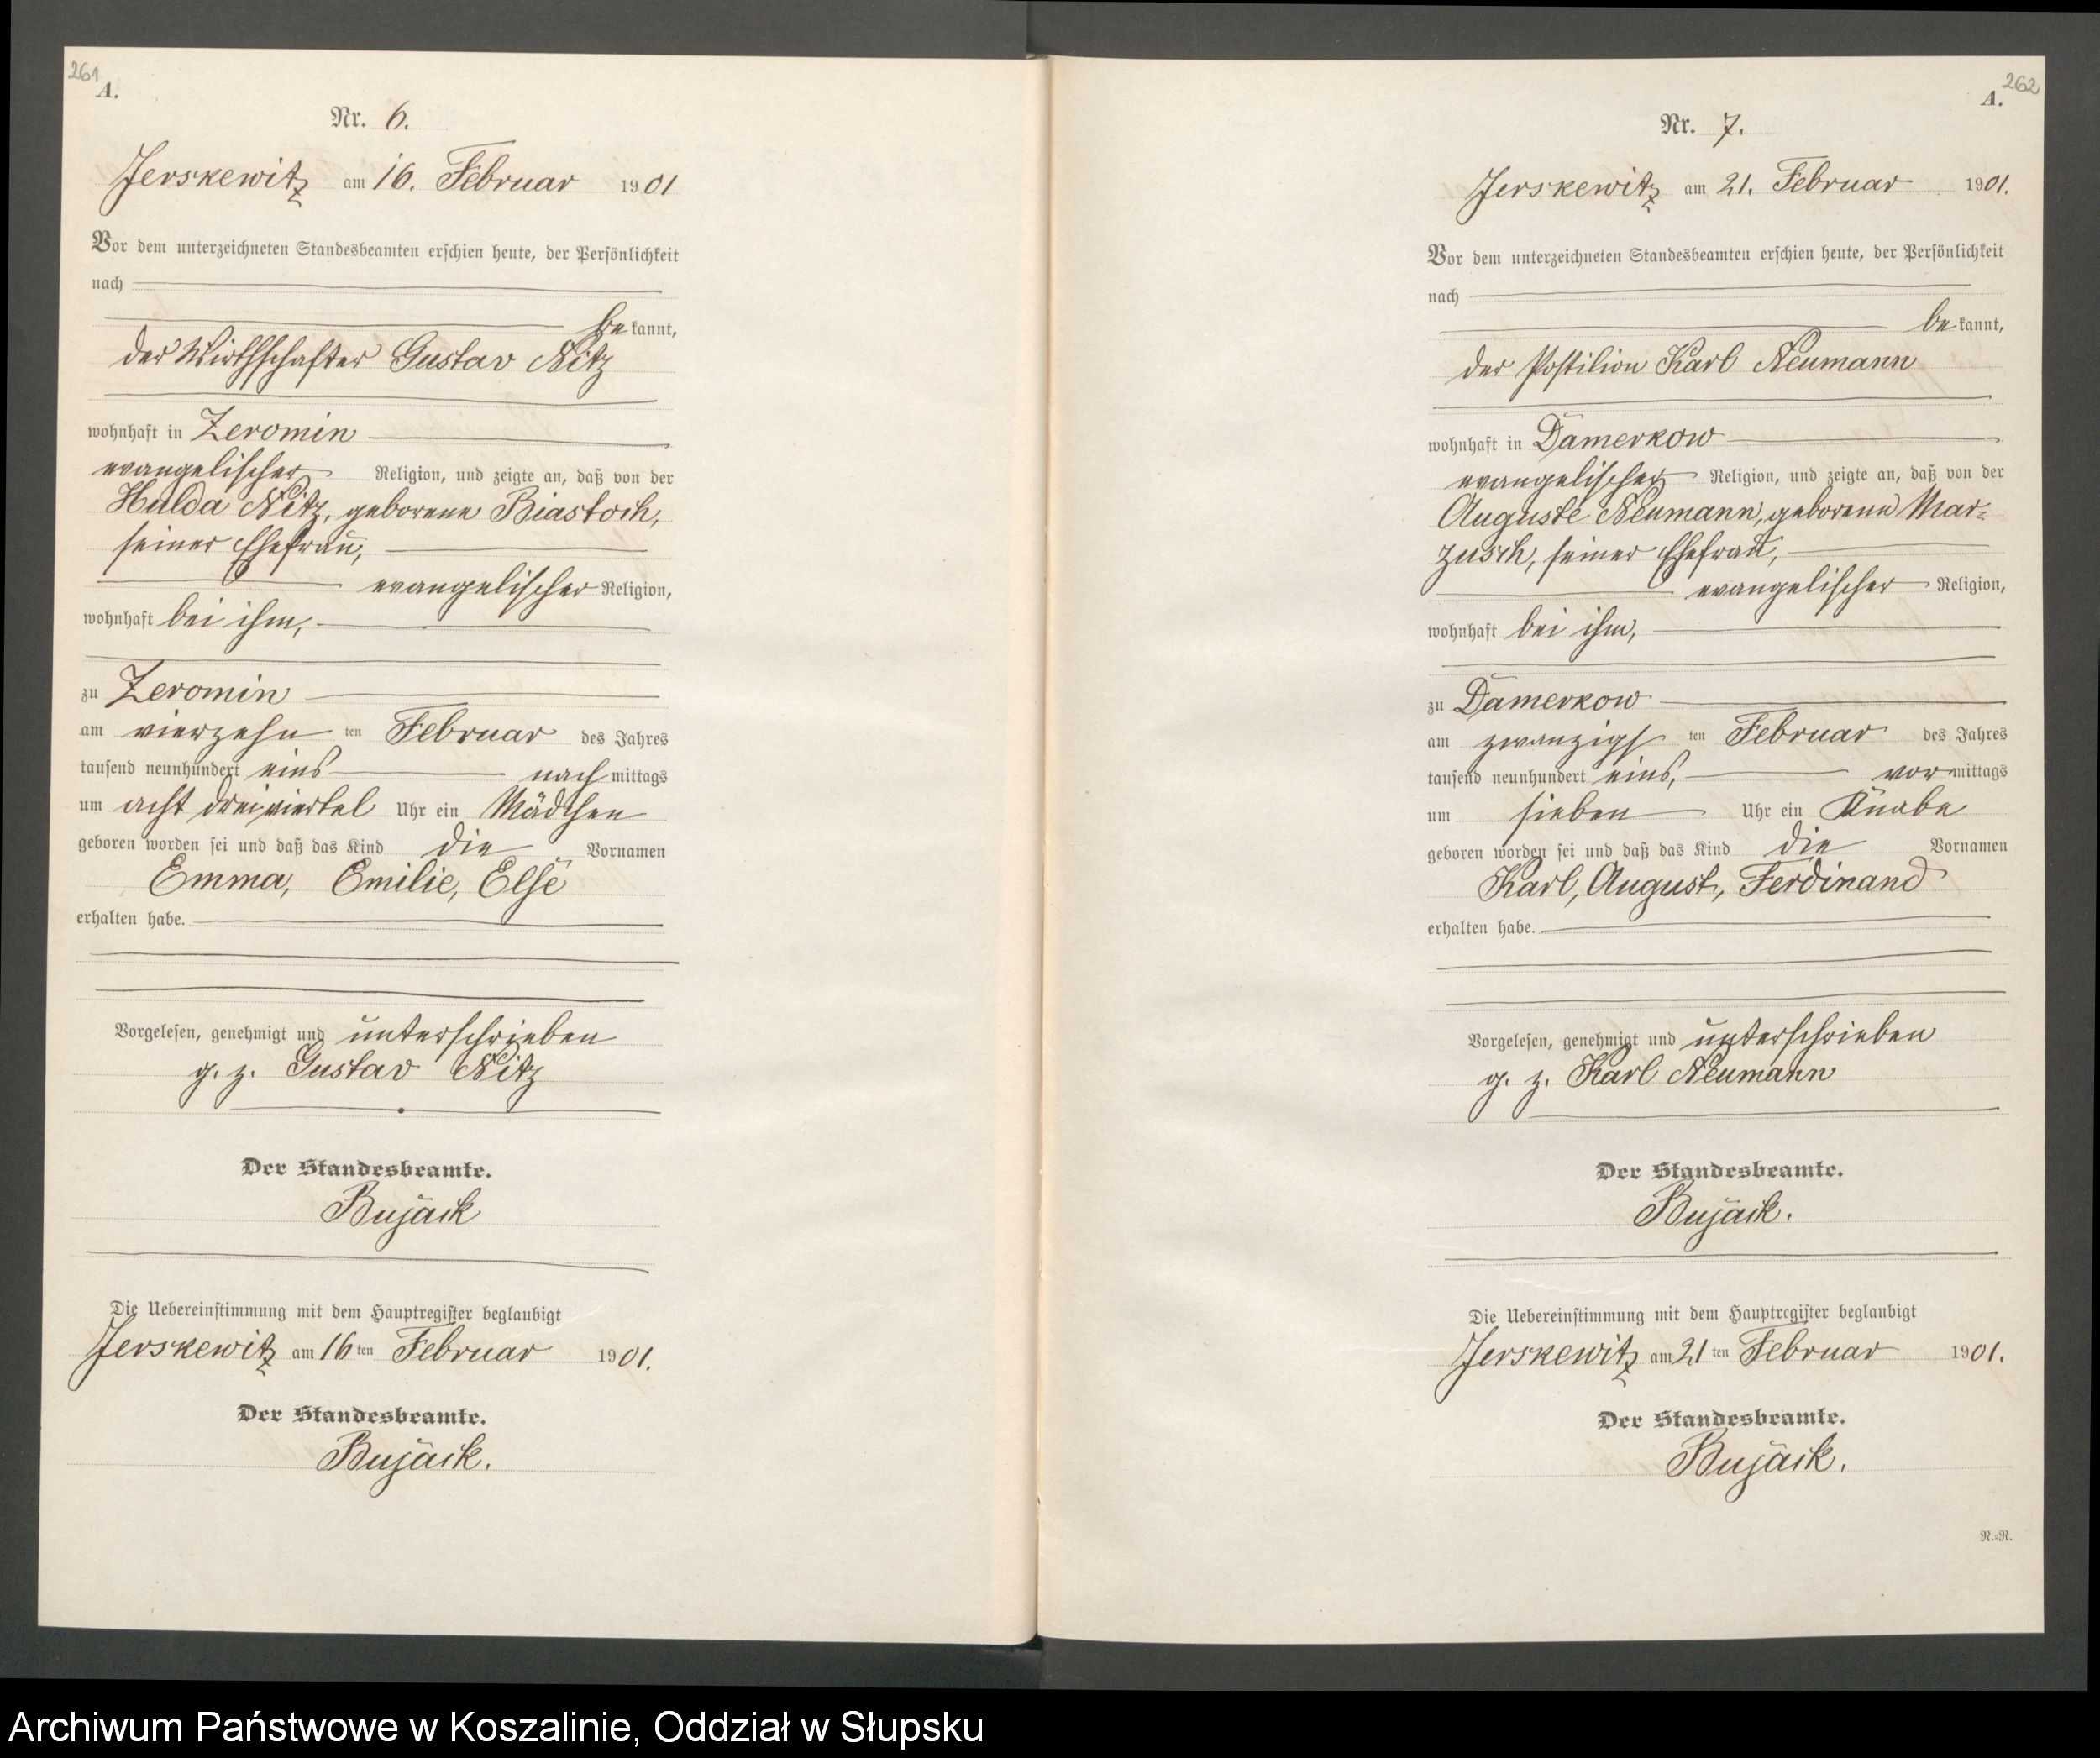 261
A.
Nr. 6.
Jerskewitz am 16. Februar 1901
Vor dem unterzeichneten Standesbeamten erschien heute, der Persönlichkeit
nach
bekannt,
der Wirthschafter Gustav Nitz
wohnhaft in Zeromin
evangelischer Religion, und zeigte an, daß von der
Hulda Nitz, geborene Biastoch,
seiner Ehefrau,
evangelischer Religion,
wohnhaft bei ihm,
zu Zeromin
am vierzehn ten Februar des Jahres
tausend neunhundert eins nachmittags
um acht dreiviertel Uhr ein Mädchen
geboren worden sei und daß das Kind die Vornamen
Emma, Emilie, Else
erhalten habe.
Vorgelesen, genehmigt und unterschrieben
g. z. Gustav Nitz
Der Standesbeamte.
Bujack
Die Uebereinstimmung mit dem Hauptregister beglaubigt
Jerskewitz am 16ten Februar 1901.
Der Standesbeamte.
Bujack.
262
A.
Nr. 7.
Jerskewitz am 21. Februar 1901.
Vor dem unterzeichneten Standesbeamten erschien heute, der Persönlichkeit
nach
bekannt,
der Postilion Karl Neumann
wohnhaft in Damerkow
evangelischer Religion, und zeigte an, daß von der
Auguste Neumann, geborene Mar-
zusch, seiner Ehefrau,
evangelischer Religion,
wohnhaft bei ihm,
zu Damerkow
am zwanzigs ten Februar des Jahres
tausend neunhundert eins, vormittags
um sieben Uhr ein Knabe
geboren worden sei und daß das Kind die Vornamen
Karl, August, Ferdinand
erhalten habe.
Vorgelesen, genehmigt und unterschrieben
g. z. Karl Neumann
Der Standesbeamte.
Bujack.
Die Uebereinstimmung mit dem Hauptregister beglaubigt
Jerskewitz am 21ten Februar 1901.
Der Standesbeamte.
Bujack.
N.-N.
Archiwum Państwowe w Koszalinie, Oddział w Słupsku